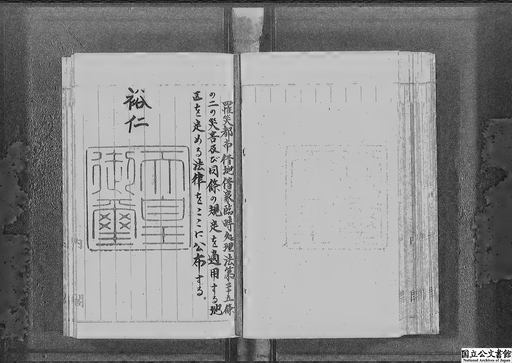 罹災都市借地借家臨時処理法第二十五條
の二の災害及び同條の規定を適用する地
区を定める法律をここに公布する。
裕仁
天皇
御璽
内
閣
国立公文書館
National Archives of Japan